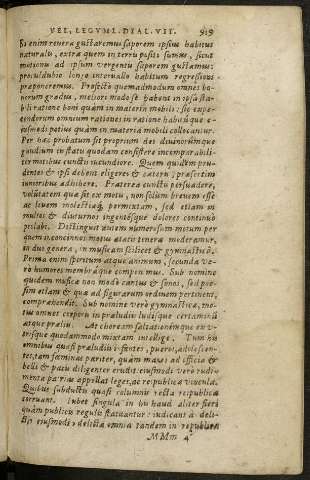 VEL, LEGVM L. DIAL. VII. 919
Si enim reuera gustaremus saporem ipsius habitus
naturalis, extra quem in terris positi sumus, sicut
motionis ad ipsum vergentis saporem gustamus:
proculdubio longo interuallo habitum regressioni
praponeremus. Profecto quemadmodum omnes bo-
norum gradus, meliori modo se habent in ipsa sta-
bili ratione boni quàm in materia mobili: sic expe-
tendorum omnium rationes in ratione habitúsque e-
iusmodi potius quàm in materia mobili collocantur.
Per hæc probatum sit proprium dei diuinorúmque
gaudium in statu quodam consistere incomparabili-
ter motibus cunctis iucundiore. Quem quidem pru-
dentes & ipsi debent eligere & cateris præsertim
iunioribus adhibere. Præterea cunctis persuadere,
volutatem quæ fit ex motu, non solùm breuem esse
ac leuem molestiáq; permixtam, sed etiam in
multos & diuturnos ingentésque dolores continuò
prolabi. Distinguit autem numerosum motum per
quem inconcinnos motus ætatis teneræ moderamur,
in duo genera, in musicam scilicet & gymnasticã.
Prima enim spiritum atque animum, secunda ve-
rò humores membráque componimus. Sub nomine
quidem musicæ non modò cantus & sonos, sed poe-
sim etiam & quæ ad figurarum ordinem pertinent,
comprehendit. Sub nomine verò gymnasticæ, mo-
tus omnes corporis in præludiis ludisque certaminis
atque præliis. At choream saltationémque ex v-
trisque quodammodo mixtam intellige. Tum his
omnibus quasi præludiis infantes, pueri, adolescen-
tes, tam fæminæ pariter, quàm mares ad officia &
belli & pacis diligenter erudit. eiusmodi verò rudi-
menta patrias appellat leges, ac reipublicæ vincula.
Quibus subductis quasi columnis recta respublica
corruant. Iubet singula in his haud aliter fieri
quàm publicis regulis statuantur: iudicans à deli-
ctis eiusmodi, delicta omnia tandem in republica
MMm 4